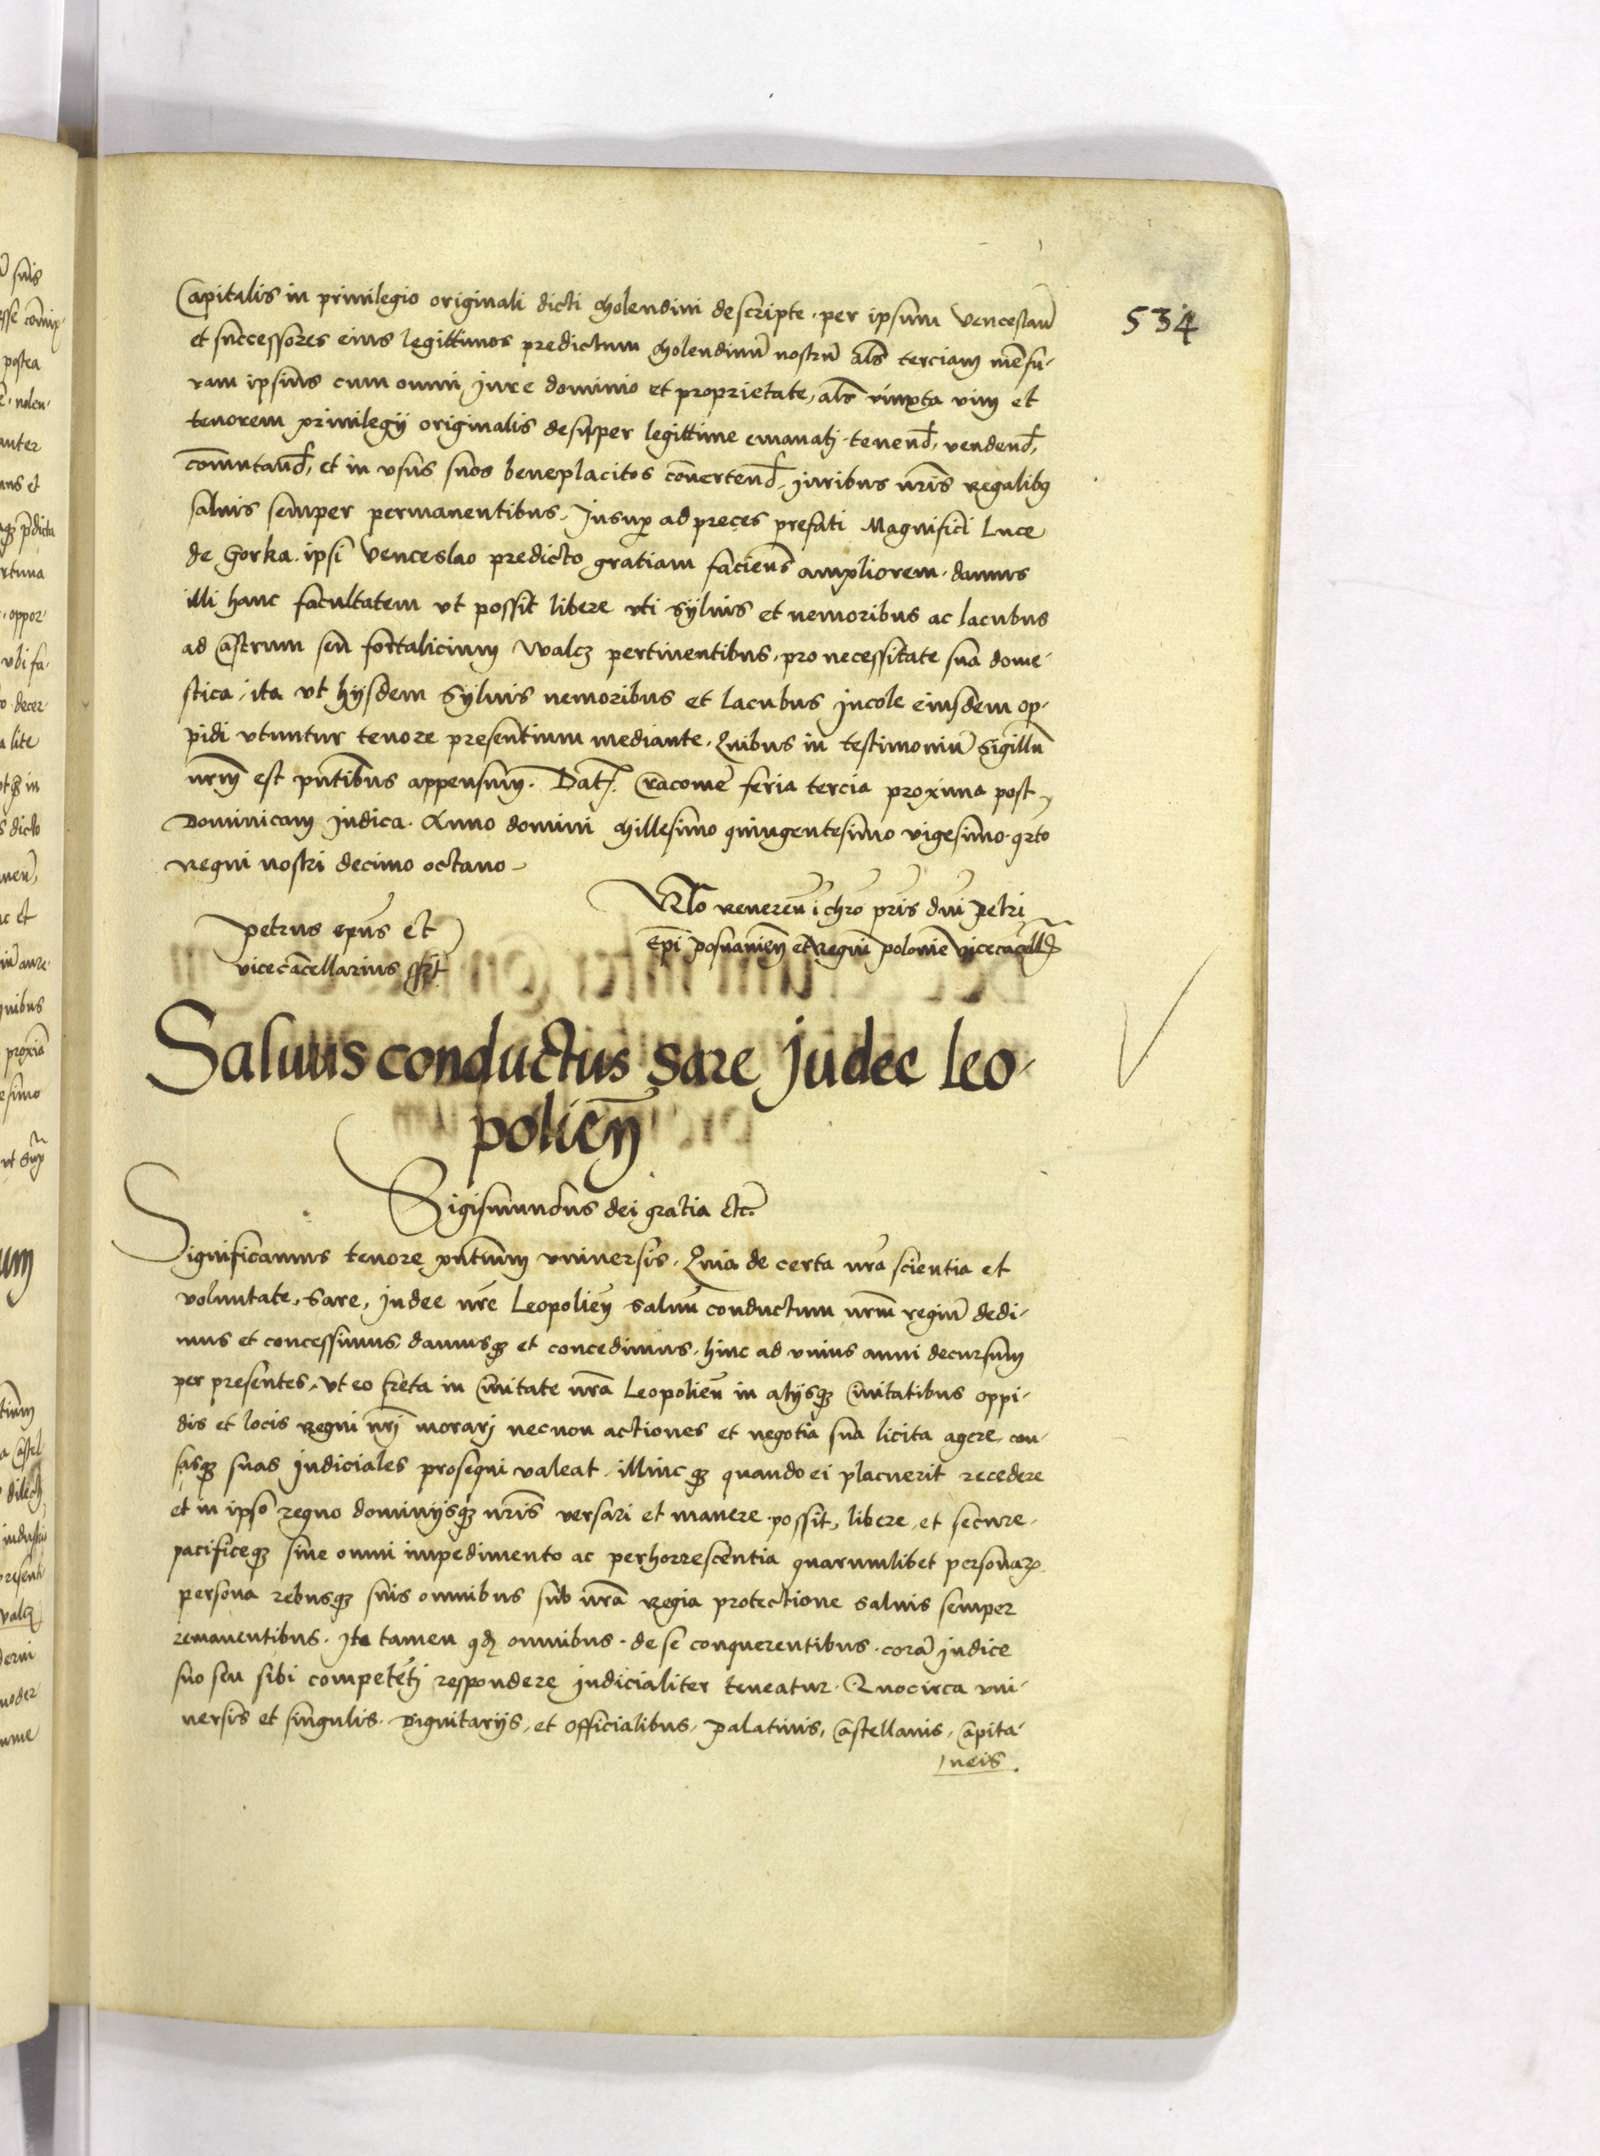 534
Capitalis in privilegio originali dicti Molendini descripte. per ipsum Venceslaū
et successores eius legittimos predictum Molendinū nostrū als terciam mēsu-
ram ipsius cum omni jure dominio et proprietate, als iuxta vim et
tenorem privilegij originalis desuper legittime emanatj. tenend, vendend,
comutand, et in usus suos beneplacitos cōvertend, juribus nris regalibus
salvis semper permanentibus. Insup ad preces prefati Magnifici Luce
de Gorka. ipsi Venceslao predicto gratiam faciens ampliorem. damus
illi hanc facultatem ut possit libere uti sylvis et nemoribus ac lacubus
ad Castrum seu fortalicium Walcz pertinentibus, pro necessitate sua dome-
stica, ita ut hijsdem Sylvis nemoribus et lacubus incole eiusdem op-
pidi utuntur tenore presentium mediante. Quibus in testimoniū Sigillū
nrm est pntibus appensum. Dat. Cracovie feria tercia proxima post
Dominicam Judica. Anno domini Millesimo quingentesimo vigesimo qrto
Regni nostri decimo octavo
Petrus epus et
vicecācellarius sszt
Rlo reveren i chro pris dni Petri
Epi Posnanien et Regni Polonie vicecācellrij
Salvus conductus Sare Judee Leo-
polien
Sigismundus dei gratia etc
Significamus tenore pntium universis. Quia de certa nra scientia et
voluntate, Sare, Judee nre Leopolien salvū conductum nrm regiū dedi-
mus et concessimus, damusq et concedimus, hinc ad unius anni decursum
per presentes, ut eo freta in Civitate nra Leopolien in alijsq Civitatibus oppi-
dis et locis Regni nrj morarj necnon actiones et negotia sua licita agere, cau-
sasq suas judiciales prosequi valeat, illincq quando ei placuerit recedere
et in ipso regno dominijsq nris versari et manere possit, libere, et secure,
pacificeq sine omni impedimento ac perhorrescentia quarumlibet personar
persona rebusq suis omnibus sub nra Regia protectione salvis semper
remanentibus. Ita tamen qd omnibus. de se conquerentibus. corā judice
suo seu sibi competētj respondere judicialiter teneatur. Quocirca uni-
versis et singulis. Dignitarijs, et Officialibus, Palatinis, Castellanis, Capita-
neis.